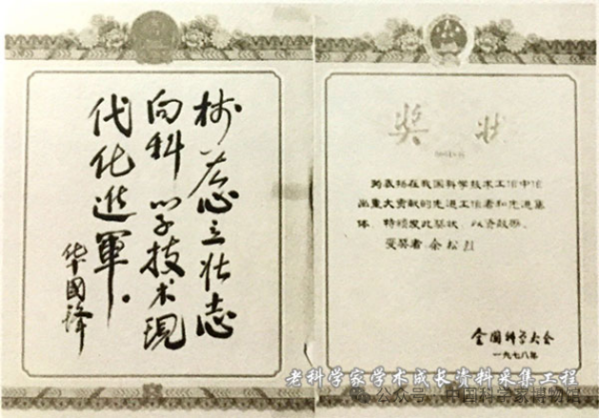 树雄心立壮志
向科学技术現
代化進軍。
华國锋
奖状
为表扬在我国科学技术工作中作
出重大贡献的先进工作者和先进集
体，特颁发此奖状，以资鼓励。
受奖者 余松烈
全国科学大会
一九七八年
老科学家学术成长资料采集工程